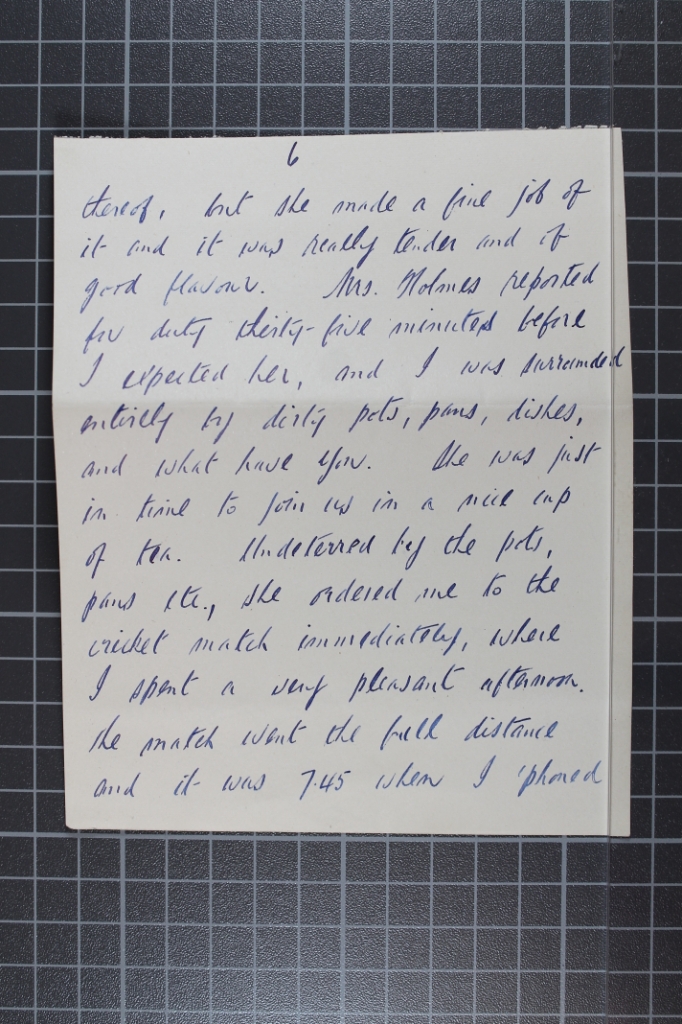 6
thereof, but she made a fine job of
it and it was really tender and of
good flavour. Mrs. Holmes reported
for duty thirty-five minutes before
I expected her, and I was surrounded
entirely by dirty pots, pans, dishes,
and what have you. She was just
in time to join us in a nice cup
of tea. Undeterred by the pots,
pans etc., she ordered me to the
cricket match immediately, where
I spent a very pleasant afternoon.
The match went the full distance
and it was 7.45 when I 'phoned